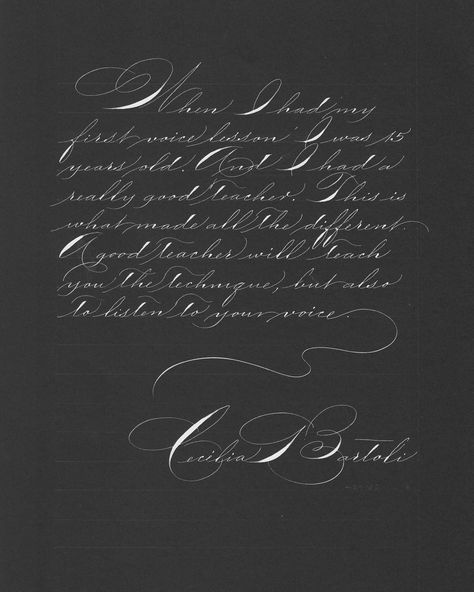 When I had my
first voice lesson I was 15
years old. And I had a
really good teacher. This is
what made all the different.
A good teacher will teach
you the technique, but also
to listen to your voice.
Cecilia Bartoli